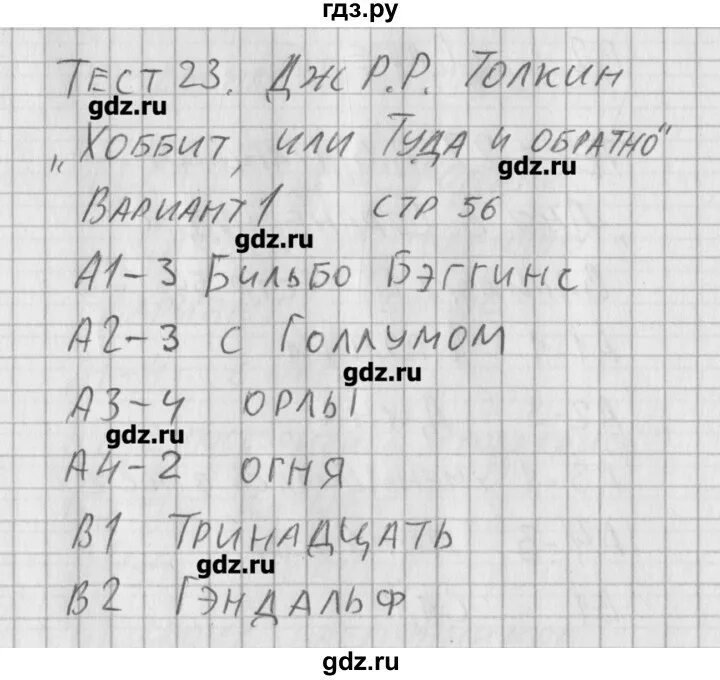 гдз.ру
Тест 23. Дж Р.Р. Толкин
gdz.ru
"Хоббит, или Туда и обратно"
gdz.ru
Вариант 1 стр 56
gdz.ru
А1-3 Бильбо Бэггинс
А2-3 с Голлумом
gdz.ru
А3-4 орлы
gdz.ru
А4-2 огня
В1 Тринадцать
gdz.ru
В2 Гэндальф
gdz.ru